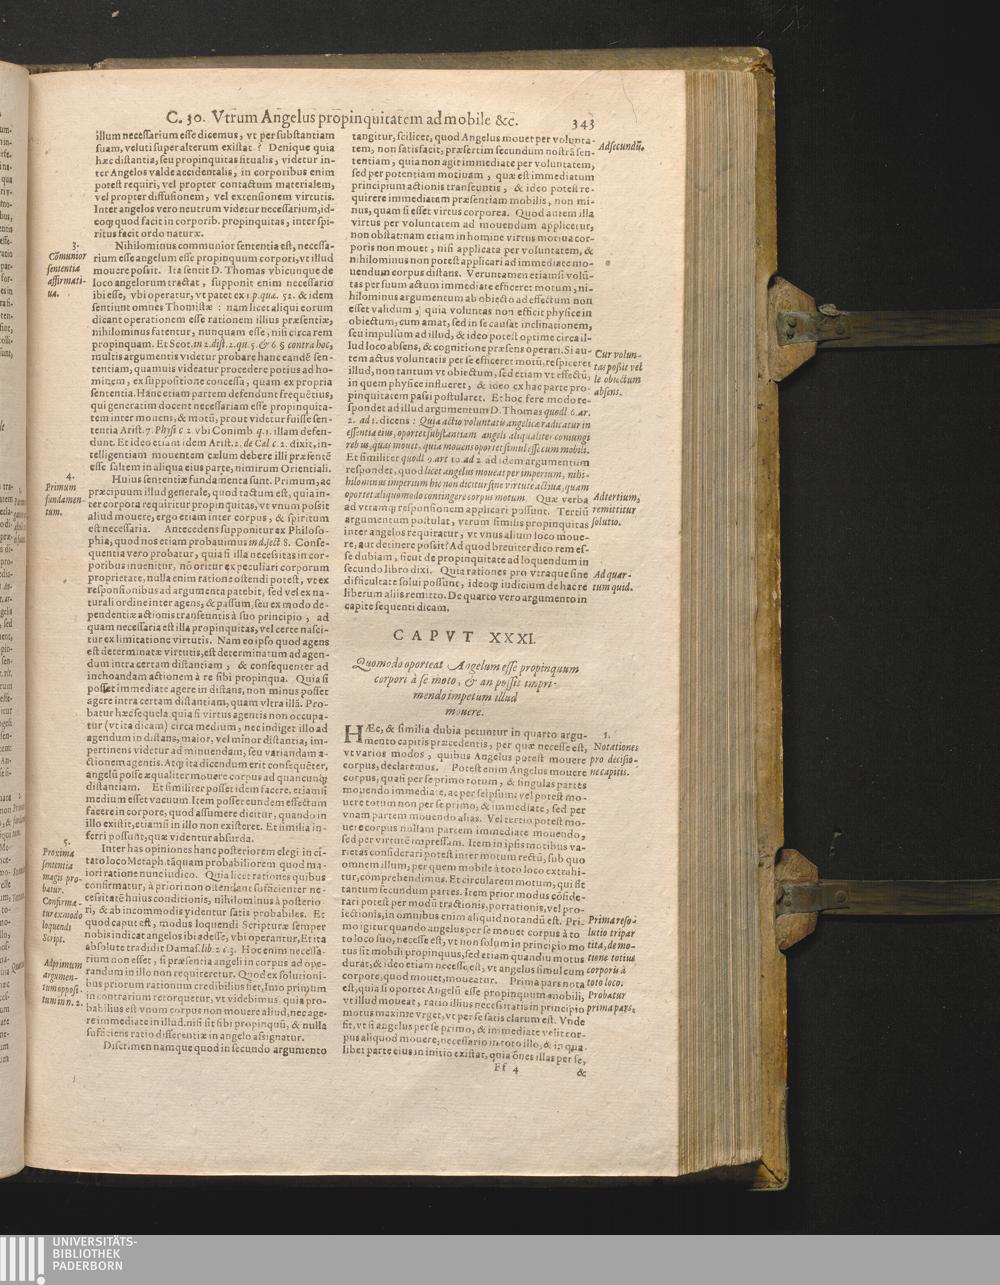 C. 30. Vtrum Angelus propinquitatem ad mobile &c.
343
illum necessarium esse dicemus, vt per substantiam
suam, veluti super alterum existat? Denique quia
hæc distantia, seu propinquitas situalis, videtur in-
ter Angelos valde accidentalis, in corporibus enim
potest requiri, vel propter contactum materialem,
vel propter diffusionem, vel extensionem virtutis.
Inter angelos vero neutrum videtur necessarium, id-
eoq; quod facit in corporib. propinquitas, inter spi-
ritus facit ordo naturæ.
3.
Cōmunior
sententia
affirmati-
ua.
Nihilominus communior sententia est, necessa-
rium esse angelum esse propinquum corpori, vt illud
mouere possit. Ita sentit D. Thomas vbicunque de
loco angelorum tractat, supponit enim necessario
ibi esse, vbi operatur, vt patet ex 1. p. quæ. 52. & idem
sentiunt omnes Thomistæ: nam licet aliqui eorum
dicant operationem esse rationem illius præsentiæ,
nihilominus fatentur, nunquam esse, nisi circa rem
propinquam. Et Scot. in 2. dist. 2. qu. 5. & 6 § contra hoc,
multis argumentis videtur probare hanc eandē sen-
tentiam, quamuis videatur procedere potius ad ho-
minem, ex suppositione concessa, quam ex propria
sententia. Hanc etiam partem defendunt frequētius,
qui generatim docent necessariam esse propinquita-
tem inter mouens, & motū, prout videtur fuisse sen-
tentia Arist. 7. Physi c. 2. vbi Conimb q. 1. illam defen-
dunt. Et ideo etiam idem Arist. 2. de Cæl c. 2. dixit, in-
telligentiam mouentem cælum debere illi præsentē
esse saltem in aliqua eius parte, nimirum Orientali.
4.
Primum
fundamen-
tum.
Huius sententiæ fundamenta sunt. Primum, ac
præcipuum illud generale, quod tactum est, quia in-
ter corpora requiritur propinquitas, vt vnum possit
aliud mouere, ergo etiam inter corpus, & spiritum
est necessaria. Antecedens supponitur ex Philoso-
phia, quod nos etiam probauimus in d. sect 8. Conse-
quentia vero probatur, quia si illa necessitas in cor-
poribus inuenitur, nō oritur ex peculiari corporum
proprietate, nulla enim ratione ostendi potest, vt ex
responsionibus ad argumenta patebit, sed vel ex na-
turali ordine inter agens, & passum, seu ex modo de-
pendentiæ actionis transeuntis à suo principio, ad
quam necessaria est illa propinquitas, vel certe nasci-
tur ex limitatione virtutis. Nam eo ipso quod agens
est determinatæ virtutis, est determinatum ad agen-
dum intra certam distantiam, & consequenter ad
inchoandam actionem à re sibi propinqua. Quia si
posset immediate agere in distans, non minus posset
agere intra certam distantiam, quam vltra illā. Pro-
batur hæc sequela, quia si virtus agentis non occupa-
tur (vt ita dicam) circa medium, nec indiget illo ad
agendum in distans, maior, vel minor distantia, im-
pertinens videtur ad minuendam, seu variandam a-
ctionem agentis. Atq; ita dicendum erit consequēter,
angelū posse æqualiter mouere corpus ad quancunq;
distantiam. Et similiter posset idem facere, etiamsi
medium esset vacuum. Item posset eundem effectum
facere in corpore, quod assumere dicitur, quando in
illo existit, etiamsi in illo non existeret. Et similia in-
ferri possunt, quæ videntur absurda.
5.
Proxima
sententia
magis pro-
batur.
Confirma-
tur ex modo
loquendi
Script.
Inter has opiniones hanc posteriorem elegi in ci-
tato loco Metaph. tāquam probabiliorem quod ma-
iori ratione nunc iudico. Quia licet rationes quibus
confirmatur, à priori non ostendant sufficienter ne-
cessitatē huius conditionis, nihilominus à posterio
ri, & ab incommodis videntur satis probabiles. Et
quod caput est, modus loquendi Scripturæ semper
nobis indicat angelos ibi adesse, vbi operantur, Et ita
absolute tradidit Damas. lib. 2 c. 3. Hoc enim necessa-
Ad primum
argumen-
tum opposi-
tum in n. 2.
rium non esset, si præsentia angeli in corpus ad ope-
randum in illo non requireretur. Quod ex solutioni-
bus priorum rationum credibilius fiet, Imo primum
in contrarium retorquetur, vt videbimus. quia pro-
babilius est vnum corpus non mouere aliud, nec age-
re immediate in illud. nisi sit sibi propinquū, & nulla
sufficiens ratio differentiæ in angelo assignatur.
Discrimen namque quod in secundo argumento
tangitur, scilicet, quod Angelus mouet per volunta-
tem, non satisfacit, præsertim secundum nostrā sen-
tentiam, quia non agit immediate per voluntatem,
sed per potentiam motiuam, quæ est immediatum
principium actionis transeuntis, & ideo potest re-
quirere immediatam præsentiam mobilis, non mi-
nus, quam si esset virtus corporea. Quod autem illa
virtus per voluntatem ad mouendum applicetur,
non obstat: nam etiam in homine virtus motiua cor-
poris non mouet, nisi applicata per voluntatem, &
nihilominus non potest applicari ad immediate mo-
uendum corpus distans. Veruntamen etiamsi volū-
tas per suum actum immediate efficeret motum, ni-
hilominus argumentum ab obiecto ad effectum non
esset validum, quia voluntas non efficit physice in
obiectum, cum amat, sed in se causat inclinationem,
seu impulsum ad illud, & ideo potest optime circa il-
lud loco absens, & cognitione præsens operari. Si au-
tem actus voluntatis per se efficeret motū, respiceret
illud, non tantum vt obiectum, sed etiam vt effectū,
in quem physice influeret, & ideo ex hac parte pro-
pinquitatem passi postularet. Et hoc fere modo re-
spondet ad illud argumentum D. Thomas quodl. 6. ar.
2. ad 1. dicens: Quia actio voluntatis angelicæ radicatur in
essentia eius, oportet substantiam angeli aliqualiter coniungi
rebus, quas mouet, quia mouens oportet simul esse cum mobili.
Et similiter quodl 9. art 10. ad 2. ad idem argumentum
respondet, quod licet angelus moueat per imperium, nihi-
lominus imperium hic non dicitur sine virtute actiua, quam
oportet aliquo modo contingere corpus motum. Quæ verba
ad vtramq; responsionem applicari possunt. Tertiū
argumentum postulat, vtrum similis propinquitas
inter angelos requiratur, vt vnus alium loco moue-
re, aut detinere possit? Ad quod breuiter dico rem es-
se dubiam, sicut de propinquitate ad loquendum in
secundo libro dixi. Quia rationes pro vtraque sine
difficultate solui possunt, ideoq; iudicium de hac re
liberum aliis remitto. De quarto vero argumento in
capite sequenti dicam.
Ad secundū.
Cur volun-
tas possit vel
le obiectum
absens.
Ad tertium,
remittitur
solutio.
Ad quar-
tum quid.
CAPVT XXXI.
Quomodo oporteat Angelum esse propinquum
corpori à se moto, & an possit impri-
mendo impetum illud
mouere.
1.
Notationes
pro decisio-
ne capitis.
HÆc, & similia dubia petuntur in quarto argu-
mento capitis præcedentis, per quæ necesse est,
vt varios modos, quibus Angelus potest mouere
corpus, declaremus. Potest enim Angelus mouere
corpus, quasi per se primo totum, & singulas partes
mouendo immediate, ac per se ipsum: vel potest mo-
uere totum non per se primo, & immediate, sed per
vnam partem mouendo alias. Vel tertio potest mo-
uere corpus nullam partem immediate mouendo,
sed per virtutē impressam. Item in ipsis motibus va-
rietas considerari potest inter motum rectū, sub quo
omnem illum, per quem mobile à toto loco extrahi-
tur, comprehendimus. Et circularem motum, qui fit
tantum secundum partes. Item prior modus cōside-
rari potest per modū tractionis, portationis, vel pro-
iectionis, in omnibus enim aliquid notandū est. Pri-
mo igitur quando angelus per se mouet corpus à to
to loco suo, necesse est, vt non solum in principio mo
tus sit mobili propinquus, sed etiam quandiu motus
durat, & ideo etiam necesse est, vt angelus simul cum
corpore, quod mouet, moueatur. Prima pars nota
est, quia si oportet Angelū esse propinquum mobili,
vt illud moueat, ratio illius necessitatis in principio
motus maxime vrget, vt per se satis clarum est. Vnde
fit, vt si angelus per se primo, & immediate velit cor-
pus aliquod mouere, necessario in toto illo, & in qua-
libet parte eius in initio existat, quia ōnes illas per se,
Prima reso-
lutio tripar
tita, de mo-
tione totius
corporis à
toto loco.
Probatur
prima pars.
Ff 4
&
UNIVERSITÄTS-
BIBLIOTHEK
PADERBORN